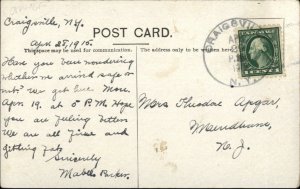 Craigsville, N.Y.
April 28, 1915.
POST CARD.
The space below may be used for correspondence
The address only to be written here.
CRAIGSVILLE
APR
P.M.
N.Y.
Have you been wondering
whether we arrived safe or
not? we got here Mon.
Apr. 19. at 5 P.M. Hope
you are feeling better
We are all fine and
getting fat.
Sincerely
Mable Parker.
Mrs Theodore Apgar,
Mendham,
N. J.